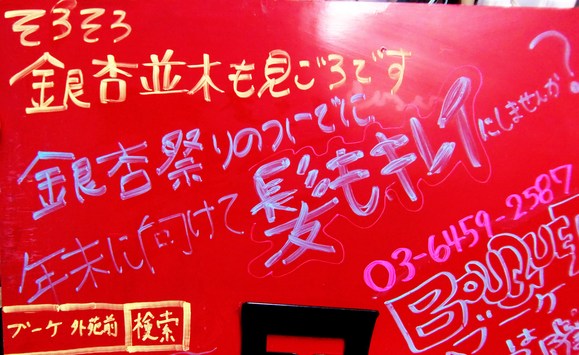 そろそろ
銀杏並木も見ごろです
銀杏祭りのついでに、
年末に向けて髪もキレイにしませんか?
03-6459-2587
BOUQUET
ブーケ
ブーケ 外苑前 検索